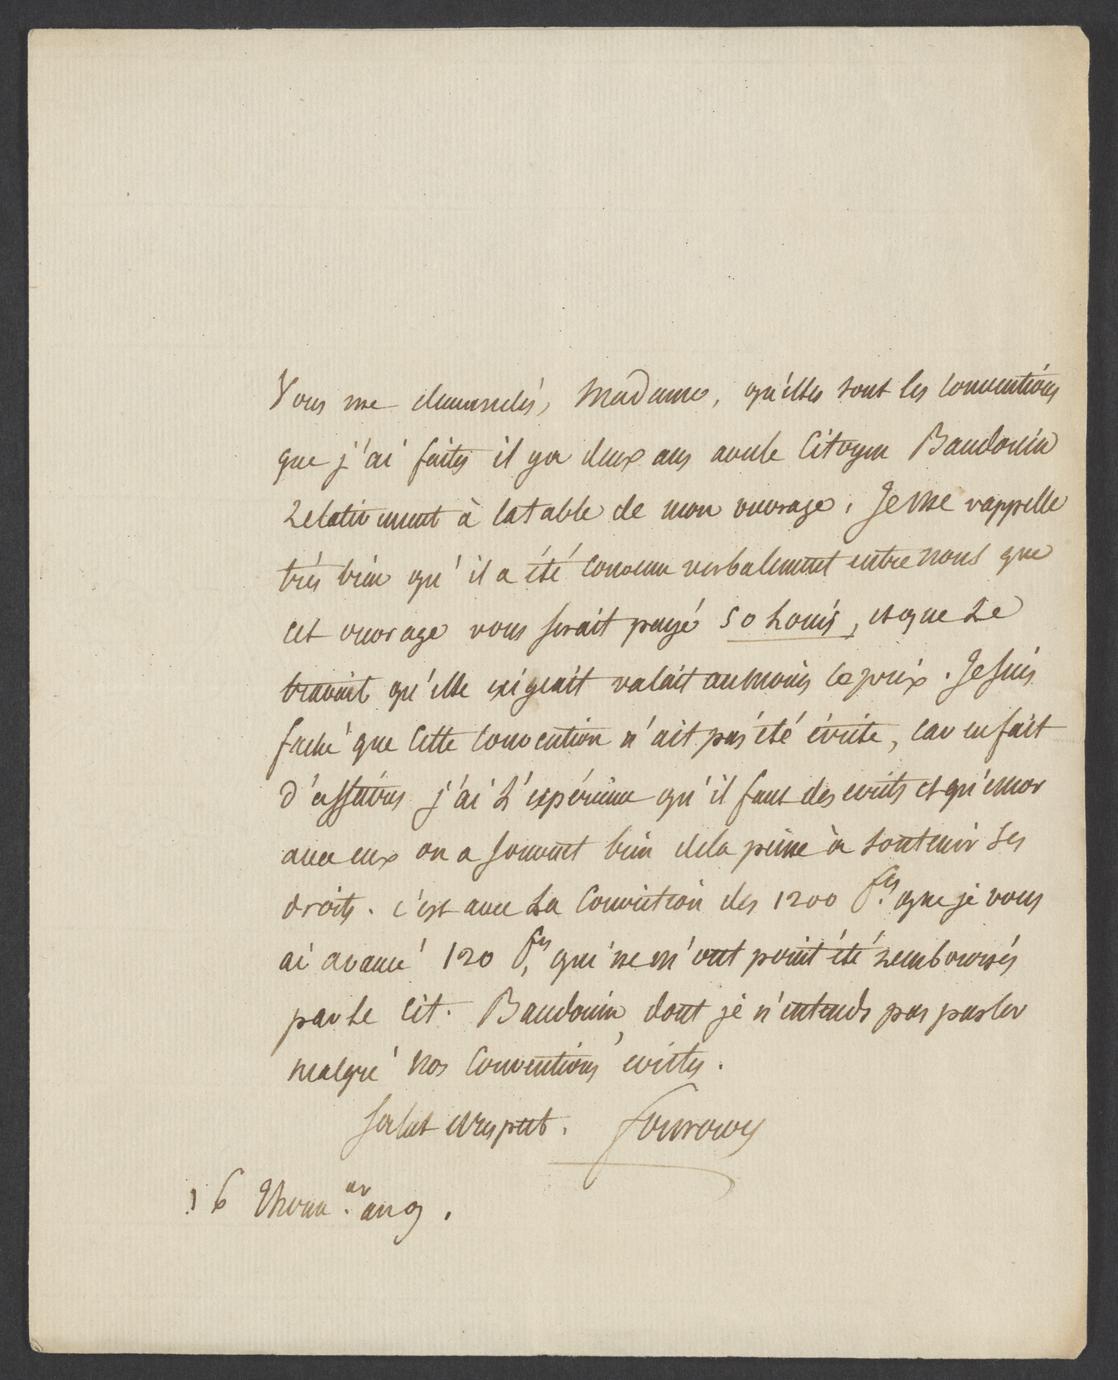 Vous me demandés, Madame, qu'elles sont les conventions
que j'ai faites il y a deux ans avec le Citoyen Baudouin
Relativement à la table de mon ouvrage. Je me rappelle
très bien qu'il a été convenu verbalement entre nous que
cet ouvrage vous serait payé 50 Louis, et que Le
travail qu'elle exigeait valait au moins ce prix. Je suis
faché que cette convention n'ait pas été écrite, car en fait
d'affaires j'ai L'expérience qu'il faut des écrits et qu'encor
avec eux on a souvent bien de la peine à soutenir Ses
droits. c'est avec La Conviction des 1200 f.cs que je vous
ai avancé 120 f.cs qui ne m'ont point été remboursés
par Le Cit. Baudouin, dont je n'entends pas parler
malgré nos Conventions écrites.
Salut et respect. Fourcroy
16 an 9.